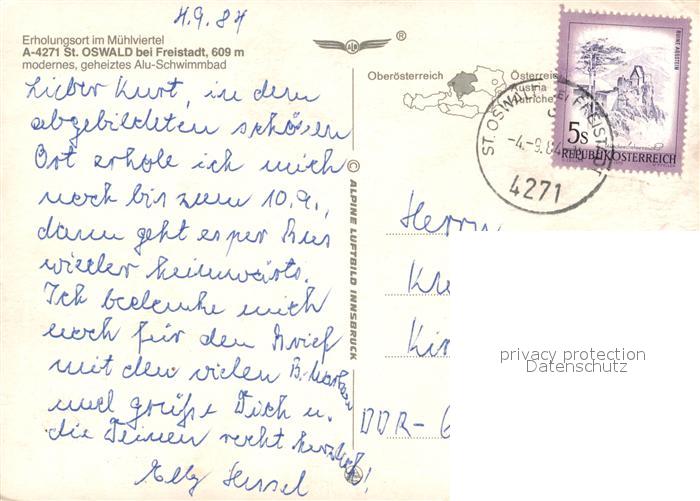 4.9.84
Erholungsort im Mühlviertel
A-4271 St. OSWALD bei Freistadt, 609 m
modernes, geheiztes Alu-Schwimmbad
Lieber Kurt, in dem
abgebildeten schönen
Ort erhole ich mich
noch bis zum 10.9.,
dann geht es per Bus
wieder heimwärts.
Ich bedanke mich
noch für den Brief
mit den vielen B.marken
und grüße Dich u.
die Deinen recht herzlich!
Elly Hessel
© ALPINE LUFTBILD INNSBRUCK
®
Oberösterreich
Österreich
Austria
Autriche
ST. OSWALD BEI FREISTADT
-4.-9.84
4271
RUINE AGGSTEIN
5s
REPUBLIK ÖSTERREICH
Herrn
DDR-
privacy protection
Datenschutz